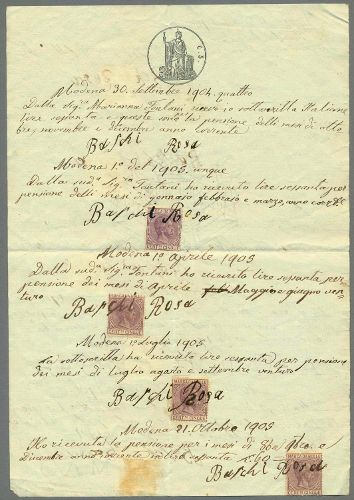 C. 5
Modena 30. Settembre 1904. quattro
Dalla Sigra Marianna ricevo io sottoscritta Italiane
lire sessanta e queste sono la pensione delli mesi di otto
bre, novembre e dicembre anno corrente
Baschi Rosa
Modena 1° del 1905.
Dalla sudta Sigra ho ricevuto lire sessanta per
pensione delli mesi di gennaio febbraio e marzo, anno
Baschi Rosa
Modena 1° Aprile 1905
Dalla sudta Sigra ho ricevuto lire sessanta per
pensione dei mesi di Aprile Maggio e giugno ven-
turo
Baschi Rosa
Modena 1° Luglio 1905.
La sottoscritta ha ricevuto lire sessanta per pensione
dei mesi di luglio agosto e settembre venturo
Baschi Rosa
Modena 21. Ottobre 1905
Ho ricevuto la pensione per i mesi di
Dicembre anno corrente in lire sessanta £60
Baschi Rosa